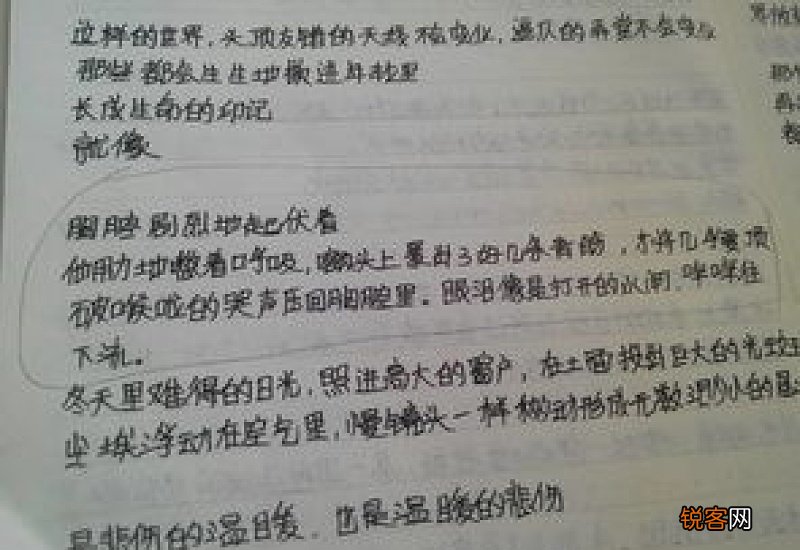 这样的世界,头顶交错的天线不会变化,逼仄的弄堂不会变
那些都会生生地撕进年轮里
长成生命的印记
就像
胸腔剧烈地起伏着
他用力地憋着呼吸,额头上暴起了好几条青筋,才将几乎要顶
破喉咙的哭声压回胸腔里。眼泪像是打开的水闸,哗哗往
下流。
冬天里难得的日光,照进高大的窗户,在地面投射巨大的光斑
尘埃浮动在空气里,慢镜头一样移动形成无数渺小的星
是悲伤的温暖.也是温暖的悲伤
锐客网